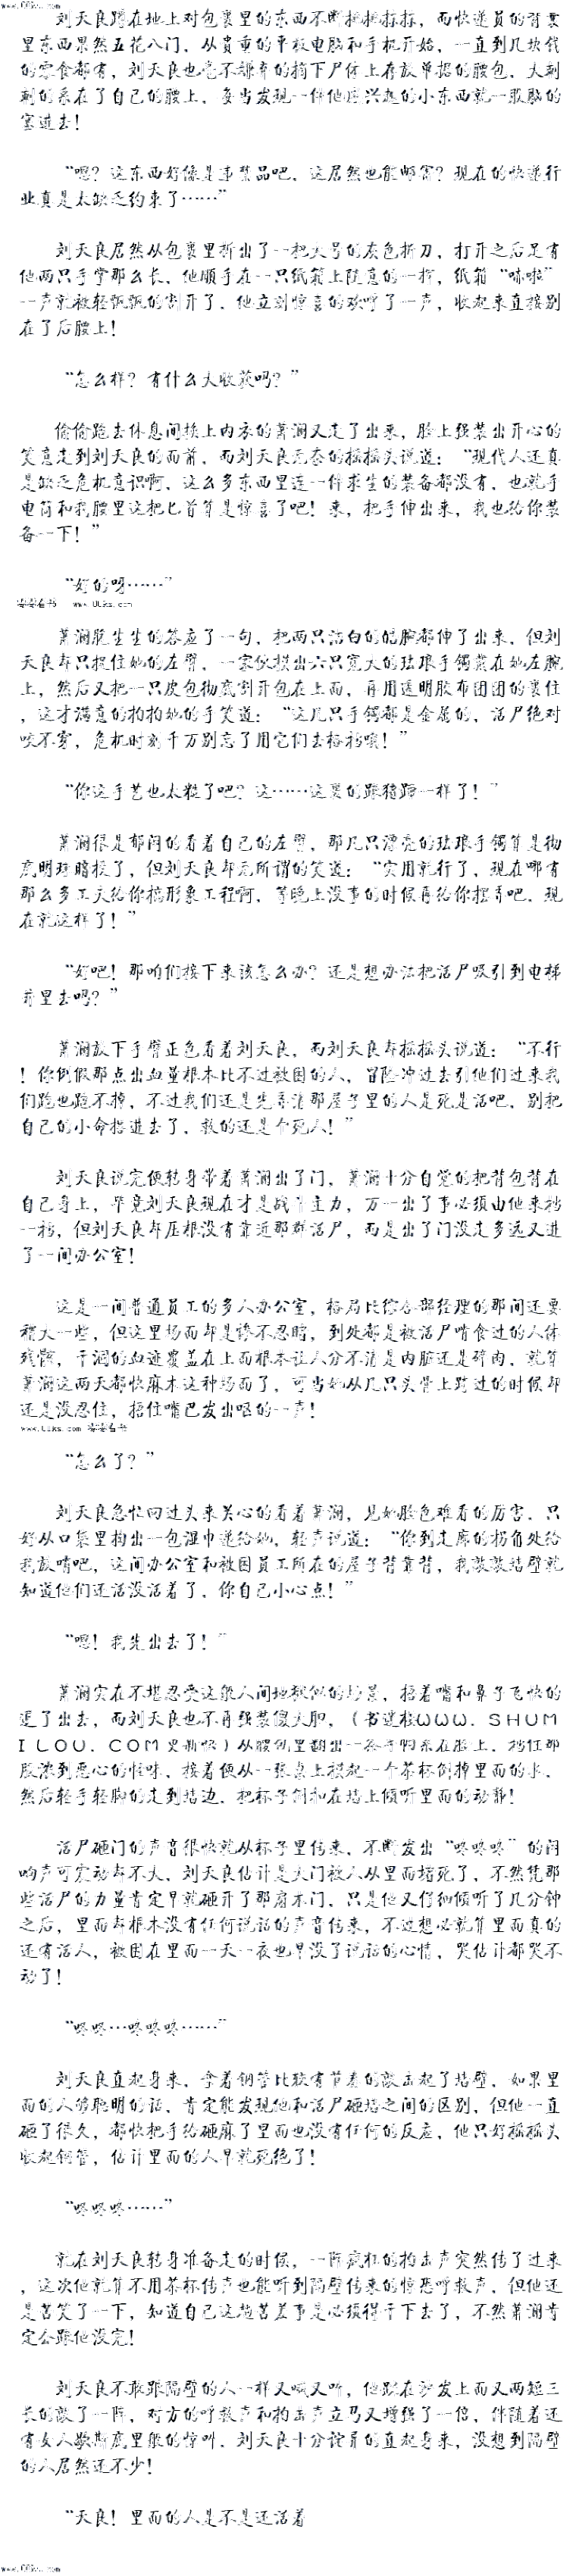 www.00ks.com
刘天良蹲在地上对包裹里的东西不断挑挑拣拣，而快递员的背囊
里东西果然五花八门，从贵重的平板电脑和手机开始，一直到几块钱
的零食都有，刘天良也毫不嫌弃的摘下尸体上存放单据的腰包，大剌
剌的系在了自己的腰上，每当发现一件他感兴趣的小东西就一股脑的
塞进去！
“嗯？这东西好像是事禁品吧，这居然也能邮寄？现在的快递行
业真是太缺乏约束了……”
刘天良居然从包裹里拆出了一把大号的灰色折刀，打开之后足有
他两只手掌那么长，他顺手在一只纸箱上随意的一挥，纸箱“哧啦”
一声就被轻飘飘的割开了，他立刻惊喜的欢呼了一声，收起来直接别
在了后腰上！
“怎么样？有什么大收获吗？”
偷偷跑去休息间换上内衣的萧澜又走了出来，脸上强装出开心的
笑意走到刘天良的面前，而刘天良无奈的摇摇头说道：“现代人还真
是缺乏危机意识啊，这么多东西里连一件求生的装备都没有，也就手
电筒和我腰里这把匕首算是惊喜了吧！来，把手伸出来，我也给你装
备一下！”
“好的呀……”
萧澜脆生生的答应了一句，把两只洁白的皓腕都伸了出来，但刘
天良却只捉住她的左臂，一家伙摸出六只宽大的珐琅手镯戴在她左腕
上，然后又把一只皮包彻底割开包在上面，再用透明胶布团团的裹住
，这才满意的拍拍她的手笑道：“这几只手镯都是金属的，活尸绝对
咬不穿，危机时刻千万别忘了用它们去格挡哦！”
“你这手艺也太糙了吧？这……这裹的跟猪蹄一样了！”
萧澜很是郁闷的看着自己的左臂，那几只漂亮的珐琅手镯算是彻
底明珠暗投了，但刘天良却无所谓的笑道：“实用就行了，现在哪有
那么多工夫给你搞形象工程啊，等晚上没事的时候再给你摆弄吧，现
在就这样了！”
“好吧！那咱们接下来该怎么办？还是想办法把活尸吸引到电梯
井里去吗？”
萧澜放下手臂正色看着刘天良，而刘天良却摇摇头说道：“不行
！你例假那点出血量根本比不过被困的人，冒险冲过去引他们过来我
们跑也跑不掉，不过我们还是先弄清那屋子里的人是死是活吧，别把
自己的小命搭进去了，救的还是个死人！”
刘天良说完便转身带着萧澜出了门，萧澜十分自觉的把背包背在
自己身上，毕竟刘天良现在才是战斗主力，万一出了事必须由他来挡
一挡，但刘天良却压根没有靠近那群活尸，而是出了门没走多远又进
了一间办公室！
这是一间普通员工的多人办公室，格局比综各部经理的那间还要
稍大一些，但这里场面却是惨不忍睹，到处都是被活尸啃食过的人体
残骸，干涸的血迹覆盖在上面根本让人分不清是内脏还是碎肉，就算
萧澜这两天都快麻木这种场面了，可当她从几只头骨上跨过的时候却
还是没忍住，捂住嘴巴发出呕的一声！
“怎么了？”
刘天良急忙回过头来关心的看着萧澜，见她脸色难看的厉害，只
好从口袋里掏出一包湿巾递给她，轻声说道：“你到走廊的拐角处给
我放哨吧，这间办公室和被困员工所在的屋子背靠背，我敲敲墙壁就
知道他们还活没活着了，你自己小心点！”
“嗯！我先出去了！”
萧澜实在不堪忍受这般人间地狱似的场景，捂着嘴和鼻子飞快的
逃了出去，而刘天良也不再强装傻大胆，（书迷楼WWW．SHUM
ILOU．COM更新快）从腰包里翻出一条手帕系在脸上，挡住那
股浓到恶心的怪味，接着便从一张桌上摸起一个茶杯倒掉里面的水，
然后轻手轻脚的走到墙边，把杯子倒扣在墙上倾听里面的动静！
活尸砸门的声音很快就从杯子里传来，不断发出“咚咚咚”的闷
响声可震动却不大，刘天良估计是大门被人从里面堵死了，不然凭那
些活尸的力量肯定早就砸开了那扇木门，只是他又仔细倾听了几分钟
之后，里面却根本没有任何说话的声音传来，不过想必就算里面真的
还有活人，被困在里面一天一夜也早没了说话的心情，哭估计都哭不
动了！
“咚咚…咚咚咚……”
刘天良直起身来，拿着钢管比较有节奏的敲击起了墙壁，如果里
面的人够聪明的话，肯定能发现他和活尸砸墙之间的区别，但他一直
砸了很久，都快把手给砸麻了里面也没有任何的反应，他只好摇摇头
收起钢管，估计里面的人早就死绝了！
“咚咚咚……”
就在刘天良转身准备走的时候，一阵疯狂的拍击声突然传了过来
，这次他就算不用茶杯传声也能听到隔壁传来的惊恐呼救声，但他还
是苦笑了一下，知道自己这趟苦差事是必须得干下去了，不然萧澜肯
定会跟他没完！
刘天良不敢跟隔壁的人一样又喊又叫，他趴在沙发上面又两短三
长的敲了一阵，对方的呼救声和拍击声立马又增强了一倍，伴随着还
有女人歇斯底里般的惊叫，刘天良十分诧异的直起身来，没想到隔壁
的人居然还不少！
“天良！里面的人是不是还活着